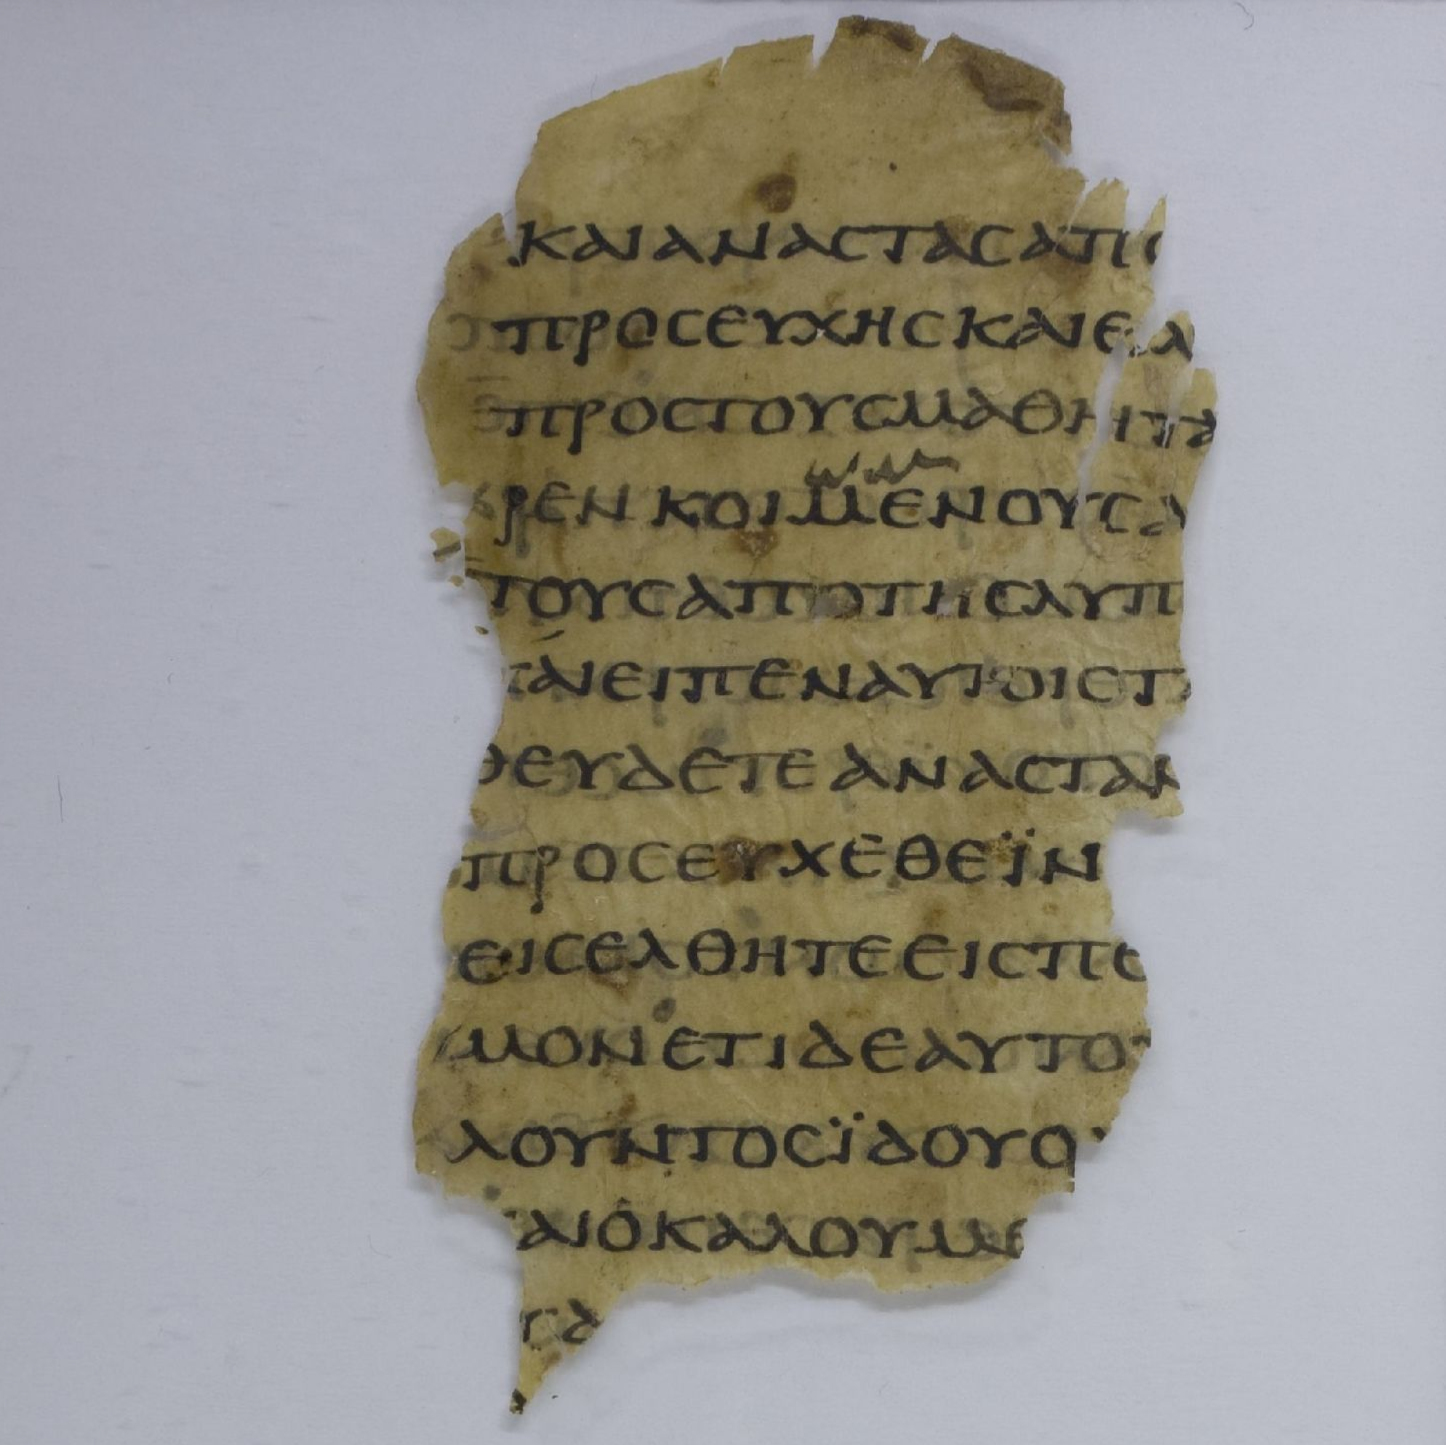 ΚΑΙΑΝΑCΤΑCΑΠΟ
ΠΡΟCΕΥΧΗCΚΑΙΕΛ
ΠΡΟCΤΟΥCΜΑΘΗΤΑ
ΡΕΝΚΟΙΜΕΝΟΥCΑ
ΤΟΥCΑΠΟΤΗCΛΥΠ
ΤΑΙΕΙΠΕΝΑΥΤΟΙCΤ
ΘΕΥΔΕΤΕΑΝΑCΤΑΝ
ΠΡΟCΕΥΧΕΘΕΪΝ
ΕΙCΕΛΘΗΤΕΕΙCΠΕ
ΜΟΝΕΤΙΔΕΑΥΤΟΥ
ΛΟΥΝΤΟCΪΔΟΥΟ
ΑΙΟΚΑΛΟΥΜΕ
ΤΑ